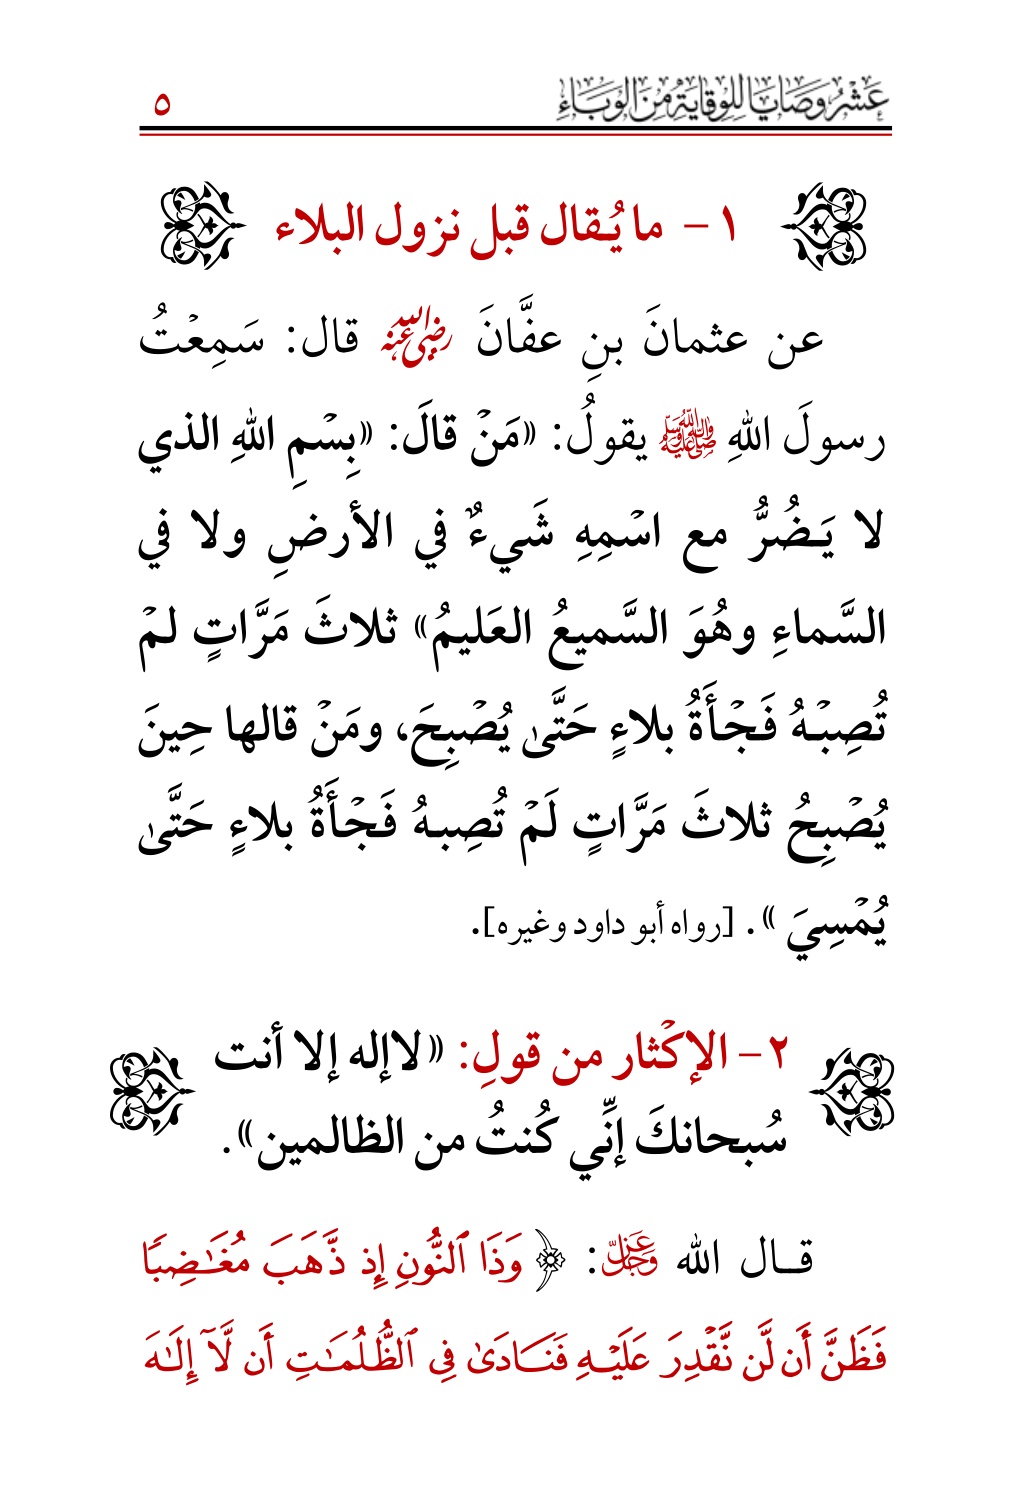 عَشْرُ وَصَايَا لِلْوِقَايَةِ مِنَ الْوَبَاءِ
٥
١ - ما يُـقال قبل نزول البلاء
عن عثمانَ بنِ عفَّانَ رضي الله عنه قال: سَمِعْتُ
رسولَ اللهِ ﷺ يقولُ: «مَنْ قالَ: «بِسْمِ اللهِ الذي
لا يَـضُرُّ مع اسْمِهِ شَيءٌ في الأرضِ ولا في
السَّماءِ وهُوَ السَّميعُ العَليمُ» ثلاثَ مَرَّاتٍ لمْ
تُصِبْـهُ فَجْأَةُ بلاءٍ حَتَّىٰ يُصْبِحَ، ومَنْ قالها حِينَ
يُصْبِحُ ثلاثَ مَرَّاتٍ لَمْ تُصِبـهُ فَجْأَةُ بلاءٍ حَتَّىٰ
يُمْسِيَ». [رواه أبو داود وغيره].
٢ - الإكْثار من قولِ: «لاإله إلا أنت
سُبحانكَ إنِّي كُنتُ من الظالمين».
قــال الله عَزَّ وَجَلَّ: ﴿وَذَا ٱلنُّونِ إِذ ذَّهَبَ مُغَـٰضِبًا
فَظَنَّ أَن لَّن نَّقْدِرَ عَلَيْـهِ فَنَـادَىٰ فِى ٱلظُّلُمَـٰتِ أَن لَّآ إِلَـٰهَ